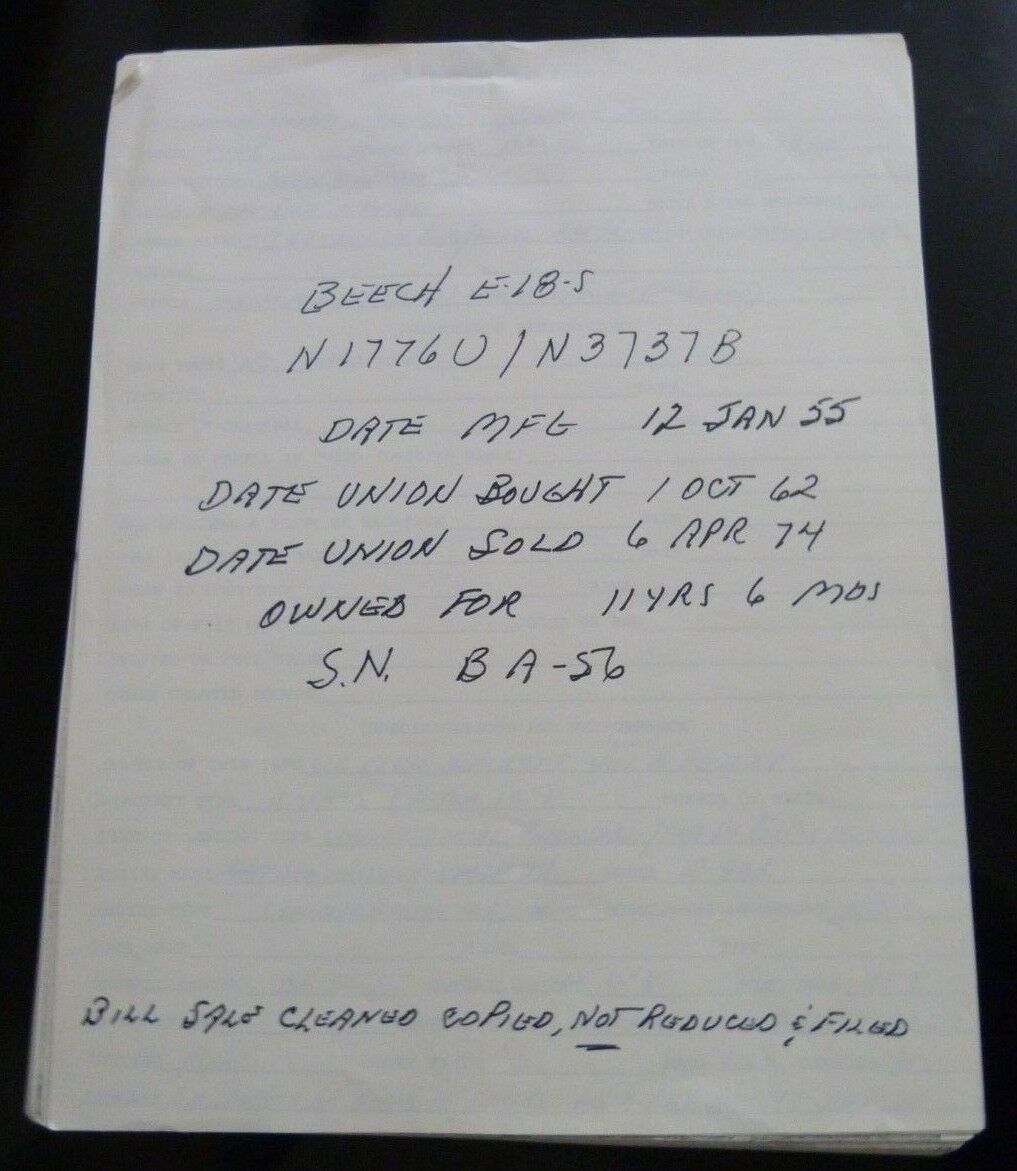 BEECH E-18-S
N1776U / N3737B
DATE MFG 12 JAN 55
DATE UNION BOUGHT 1 OCT 62
DATE UNION SOLD 6 APR 74
OWNED FOR 11 YRS 6 MOS
S.N. BA-56
BILL SALE CLEANED COPIED, NOT REDUCED & FILED